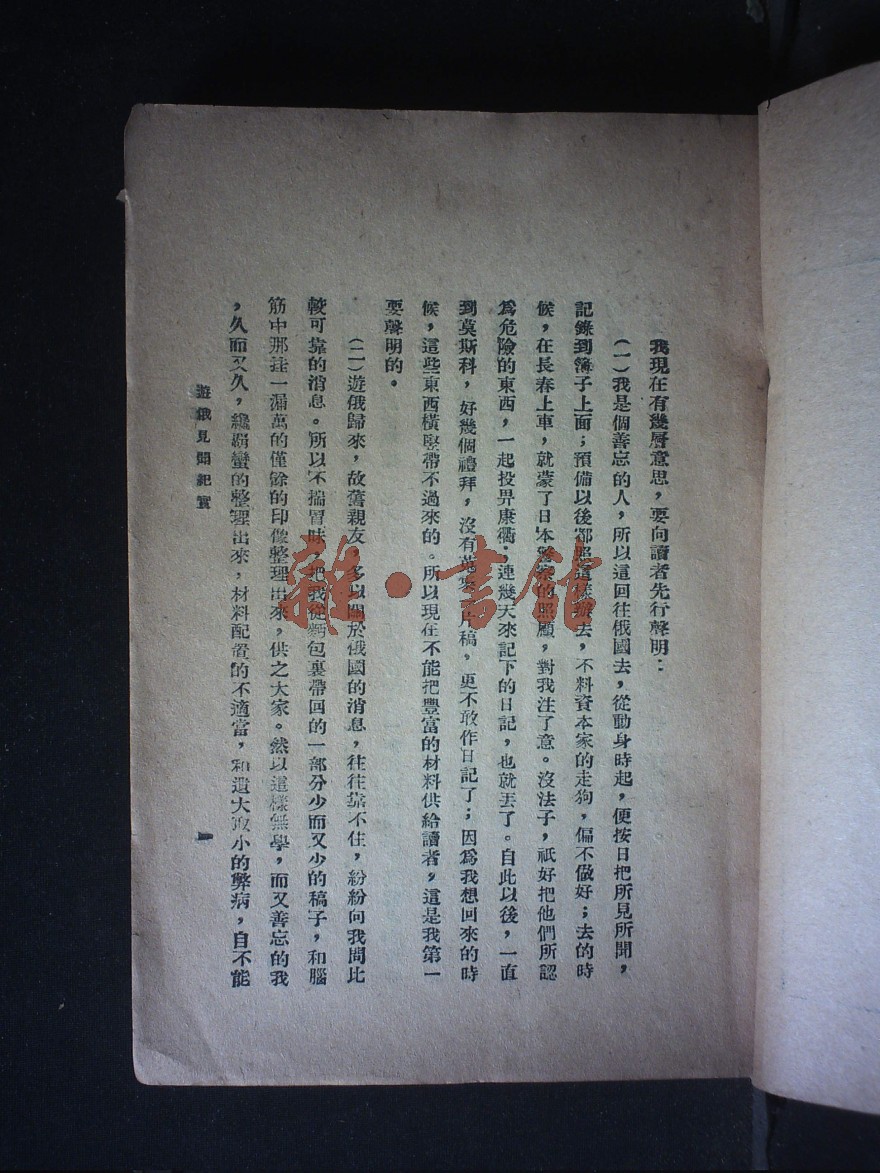 我現在有幾層意思，要向讀者先行聲明：
（一）我是個善忘的人，所以這回往俄國去，從動身時起，便按日把所見所聞，
記錄到簿子上面；預備以後都照這樣辦去，不料資本家的走狗，偏不做好；去的時
候，在長春上車，就蒙了日本警察的照顧，對我注了意。沒法子，祇好把他們所認
為危險的東西，一起投畀康衢；連幾天來記下的日記，也就丟了。自此以後，一直
到莫斯科，好幾個禮拜，沒有片稿，更不敢作日記了；因為我想回來的時
候，這些東西橫豎帶不過來的。所以現在不能把豐富的材料供給讀者，這是我第一
要聲明的。
（二）遊俄歸來，故舊親友，多以關於俄國的消息，往往靠不住，紛紛向我問比
較可靠的消息。所以不揣冒昧，把我從麪包裏帶回的一部分少而又少的稿子，和腦
筋中那挂一漏萬的僅餘的印像整理出來，供之大家。然以這樣無學，而又善忘的我
，久而又久，纔覇蠻的整理出來，材料配置的不適當，和遺大取小的弊病，自不能
遊俄見聞紀實
一
雜·書館